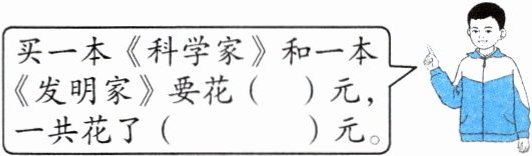 买一本《科学家》和一本
《发明家》要花（ ）元，
一共花了（ ）元。